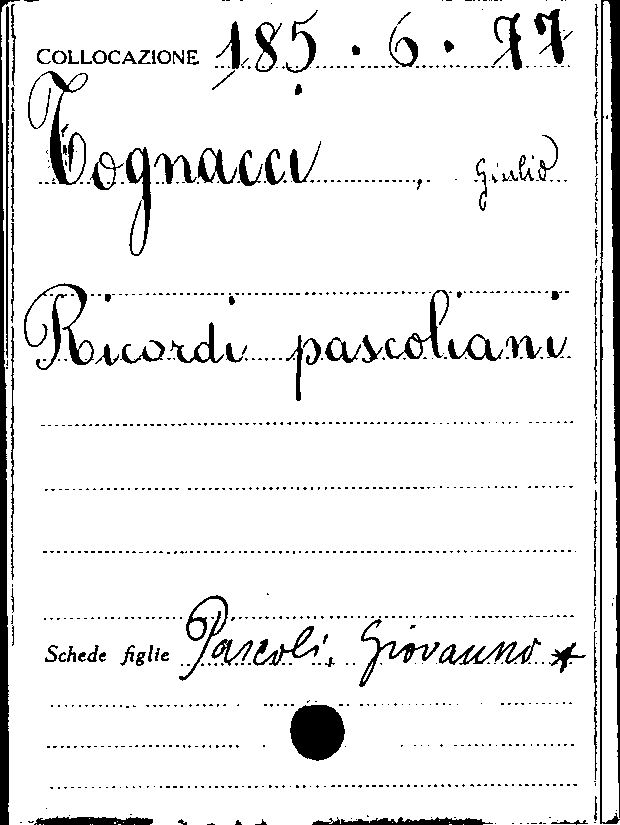 COLLOCAZIONE 185 . 6 . 77
Tognacci , Giulio
Ricordi pascoliani
Schede figlie Pascoli, Giovanni *